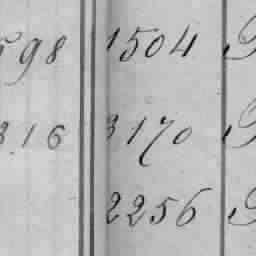 598 1504
316 3170
2256